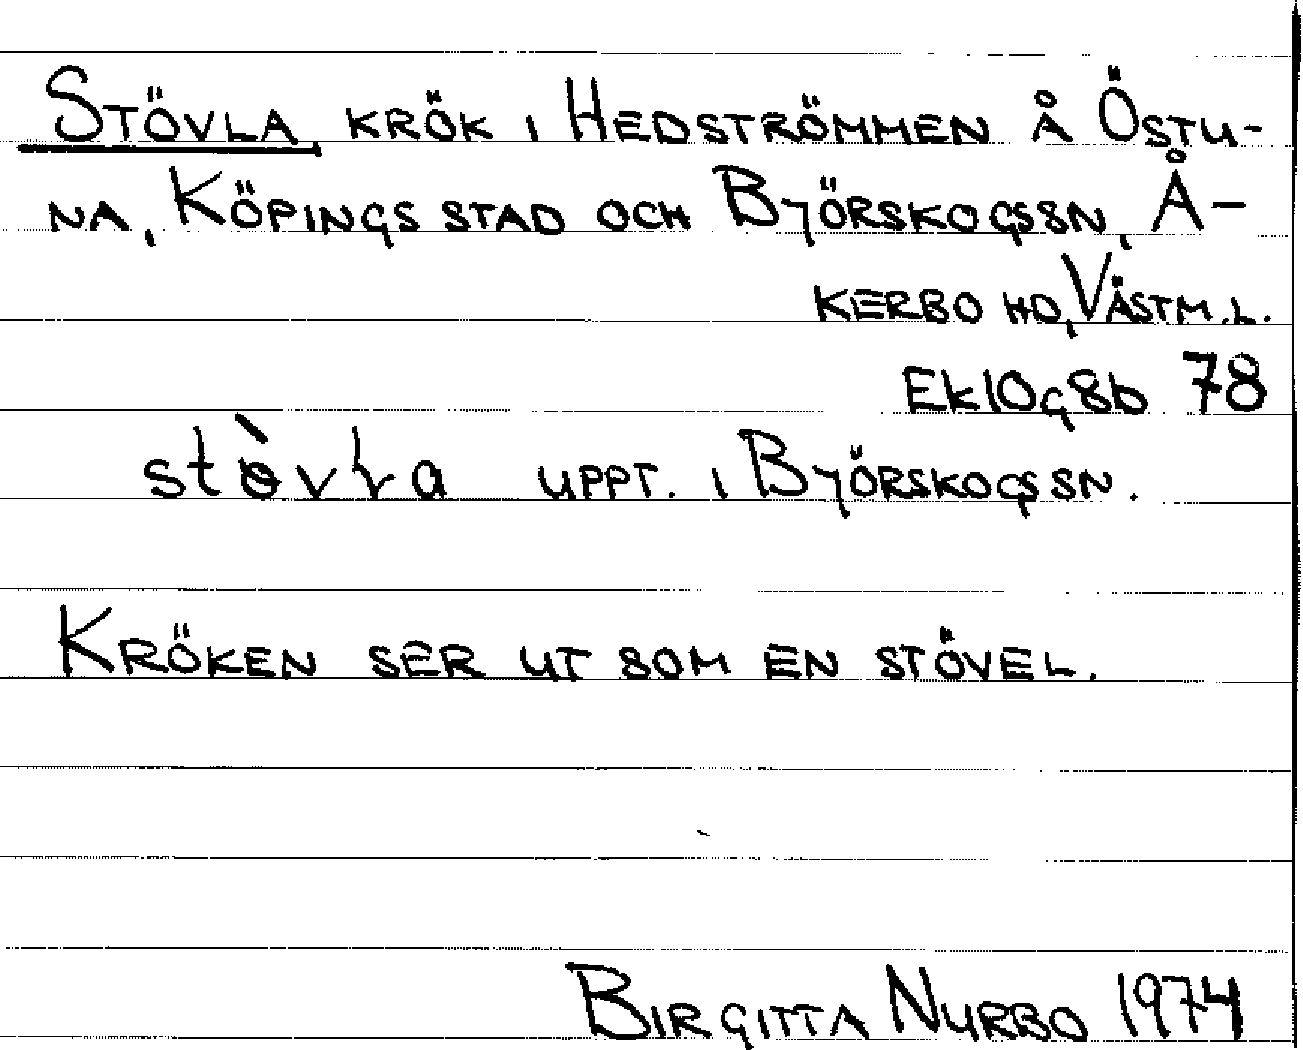 STÖVLA KRÖK I HEDSTRÖMMEN Å ÖSTU-
NA, KÖPINGS STAD OCH BJÖRSKOGSSN, Å-
KERBO HD, VÄSTM.L.
Ek10g8b 78
stòvɽa UPPT. I BJÖRSKOGSSN.
KRÖKEN SER UT SOM EN STÖVEL.
BIRGITTA NYRBO 1974